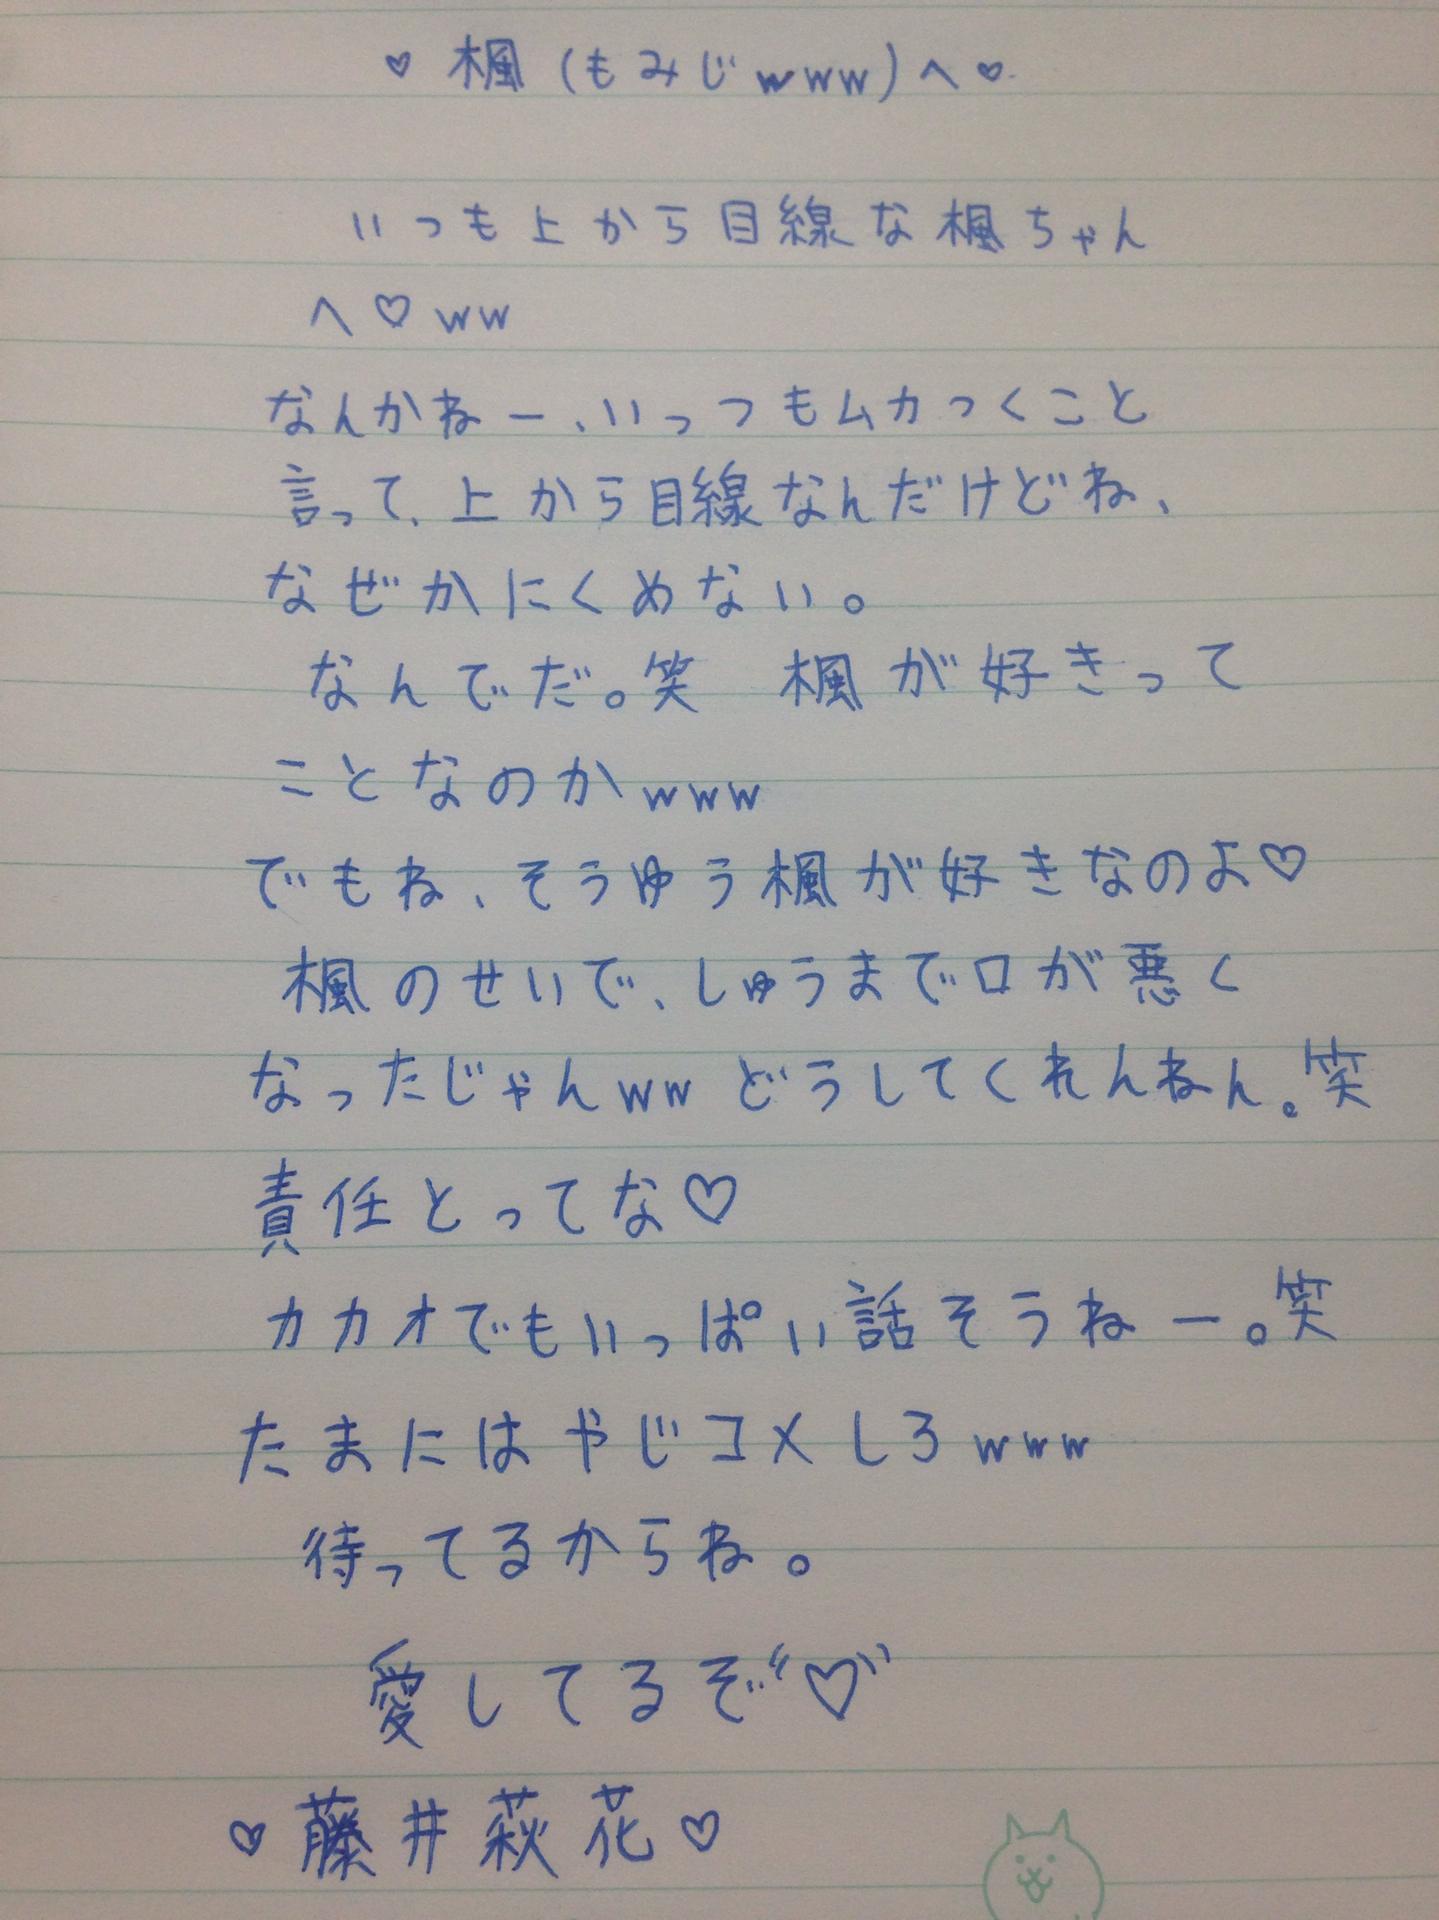 ♡楓(もみじwww)へ♡
いつも上から目線な楓ちゃん
へ♡ww
なんかねー、いっつもムカつくこと
言って、上から目線なんだけどね、
なぜかにくめない。
なんでだ。笑 楓が好きって
ことなのかwww
でもね、そうゆう楓が好きなのよ♡
楓のせいで、しゅうまで口が悪く
なったじゃんww どうしてくれんねん。笑
責任とってな♡
カカオでもいっぱい話そうねー。笑
たまにはやじコメしろwww
待ってるからね。
愛してるぞ♡
♡藤井萩花♡